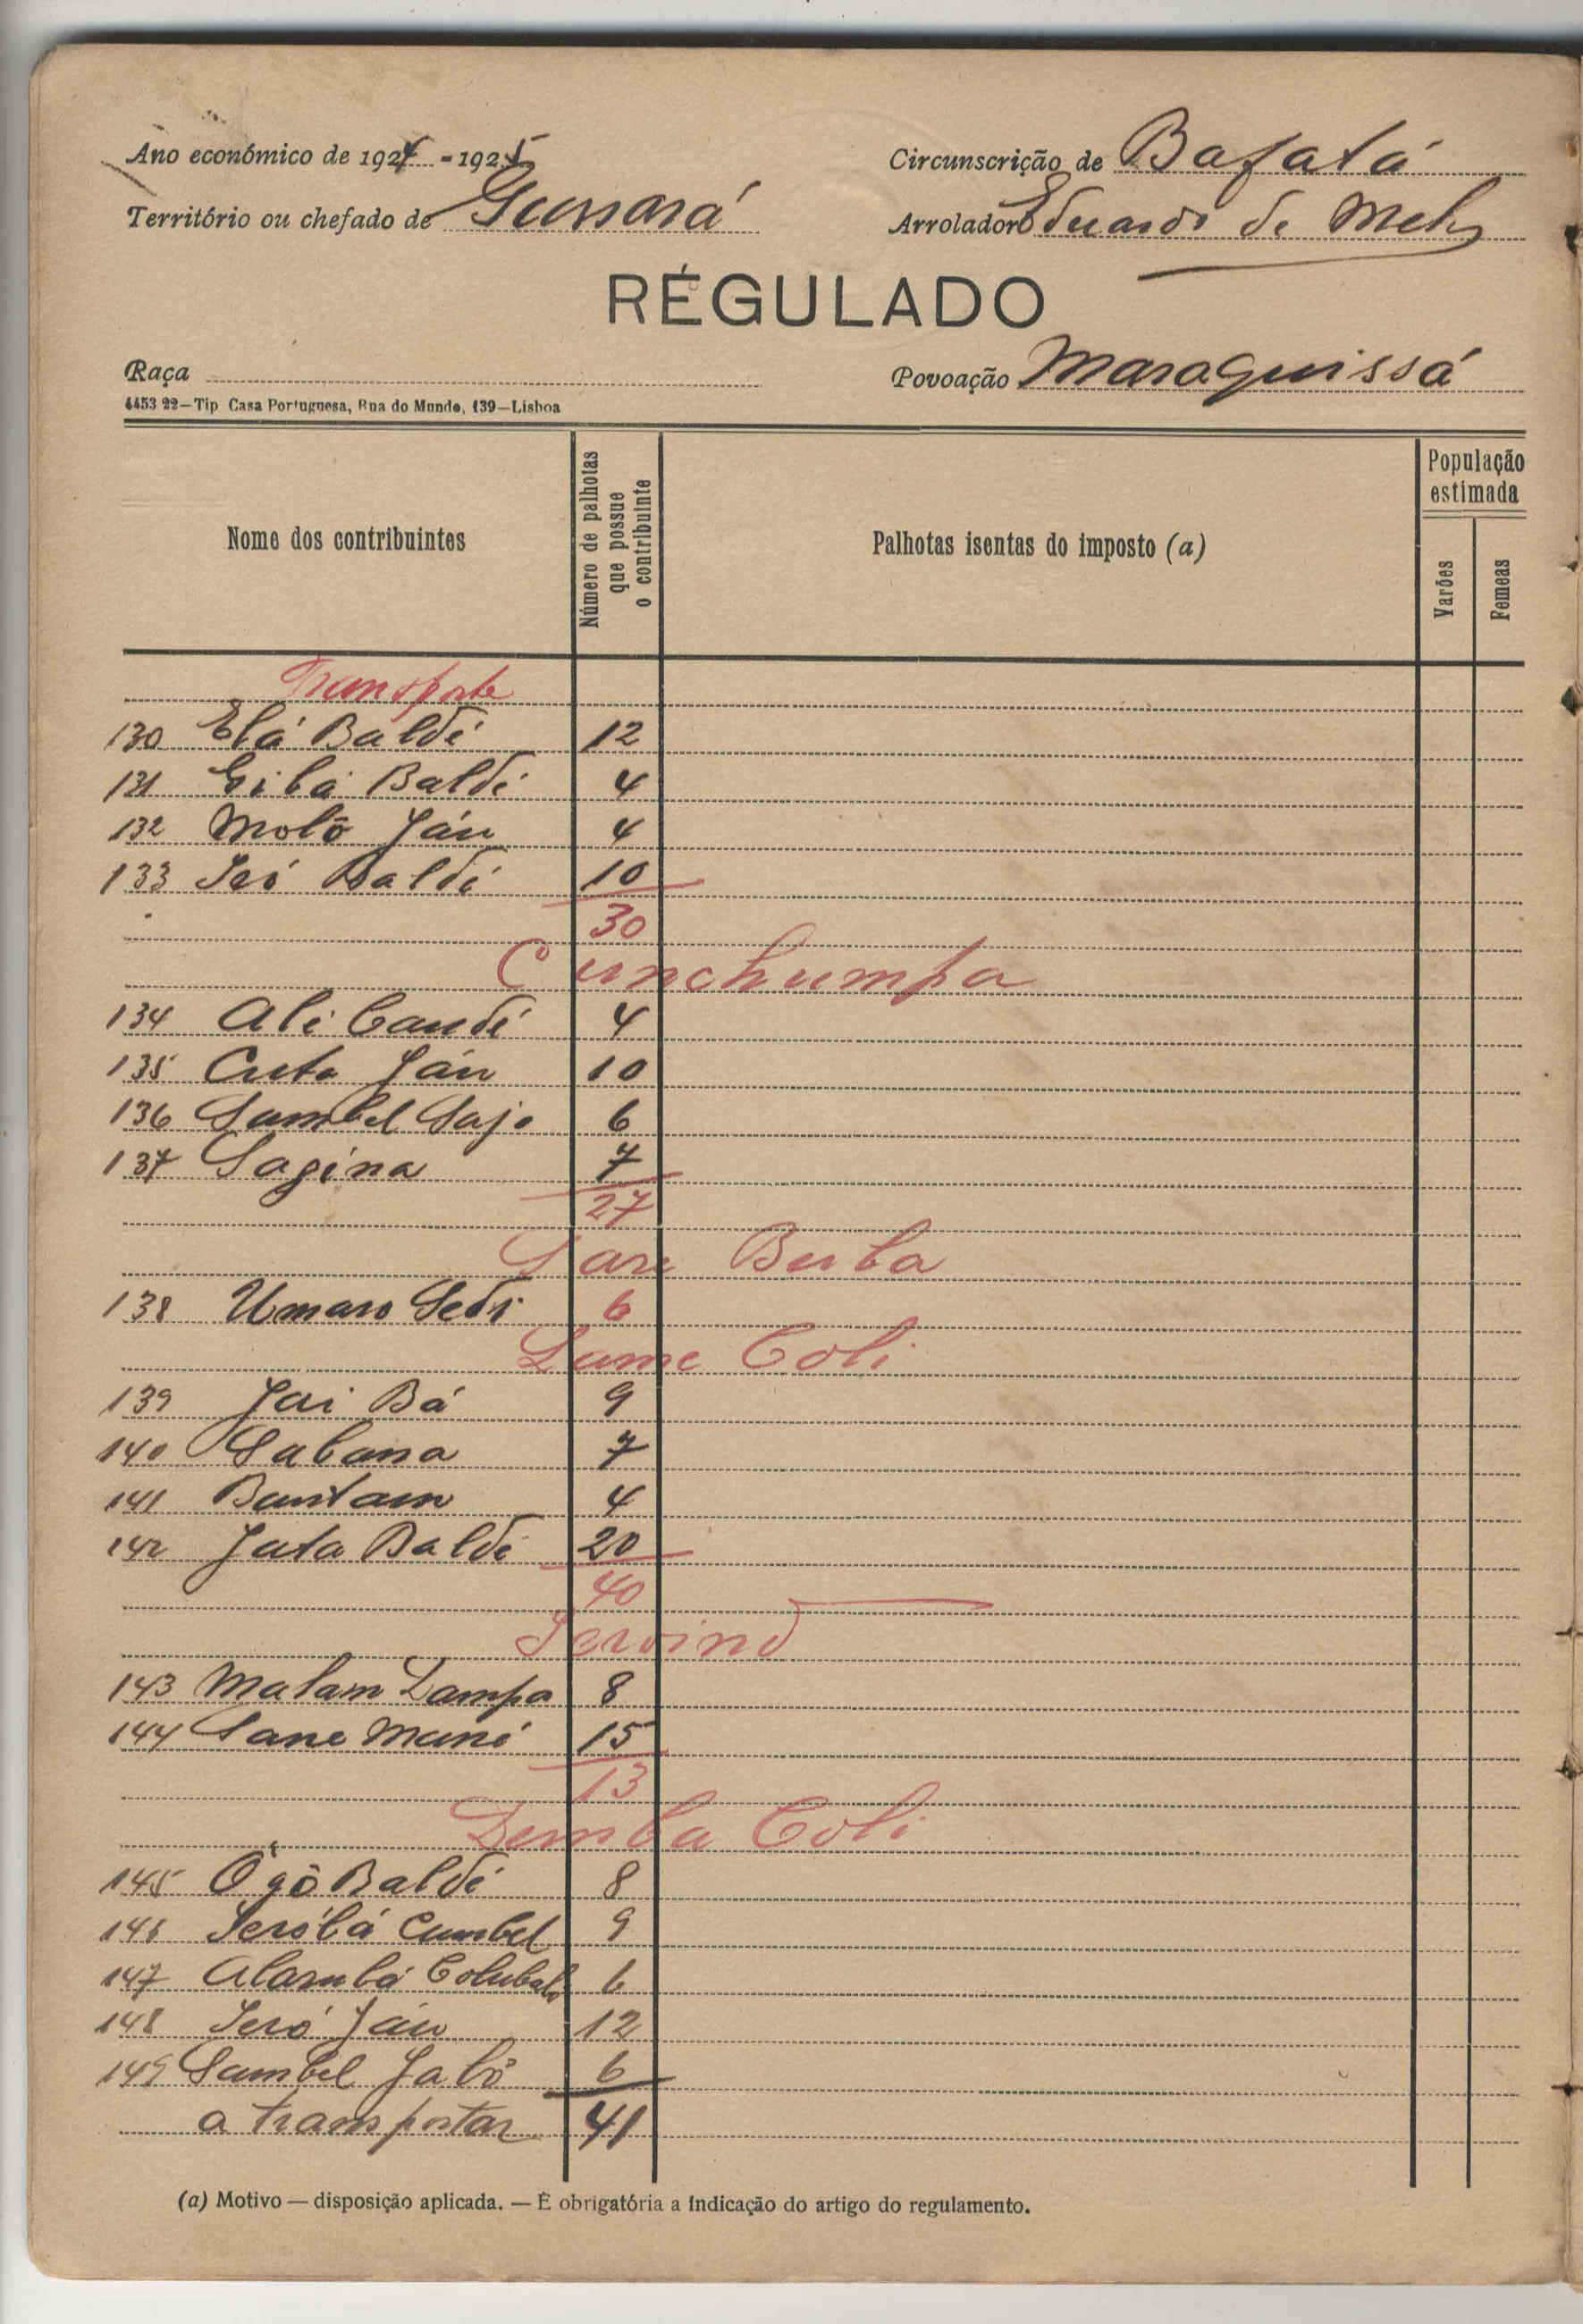 Ano económico de 1924 - 1925
Circunscrição de Bafatá
Território ou chefado de
Arrolador Eduardo de Melo
RÉGULADO
Raça
Povoação Maraquissá
4453 22—Tip Casa Portuguesa, Rua do Mundo, 139—Lisboa
Nome dos contribuintes
Número de palhotas que possue o contribuinte
Palhotas isentas do imposto (a)
População estimada
Varões
Femeas
Transporte
130 Elá Baldé 12
131 Baldé 4
132 Moló Jáu 4
133 Baldé 10
30
Cunchumpa
134 Ali Candé 4
135 Cuta Jáu 10
136 Sambel Sajo 6
137 Sagina 7
27
Sare Buba
138 Umaro Sedi 6
Lame Coli
139 Jai Bá 9
140 Sabana 7
141 Bantam 4
142 Jata Baldé 20
40
143 Malam Dampa 8
144 Sane Mané 15
13
Demba Coli
145 Ogô Baldé 8
146 Cumbel 9
147 6
148 Seró Jáu 12
149 Sambel Jaló 6
a transportar 41
(a) Motivo — disposição aplicada. — É obrigatória a indicação do artigo do regulamento.